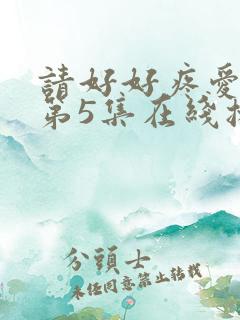 請好好疼愛
第5集在綫
分頭士
未經同意禁止轉載